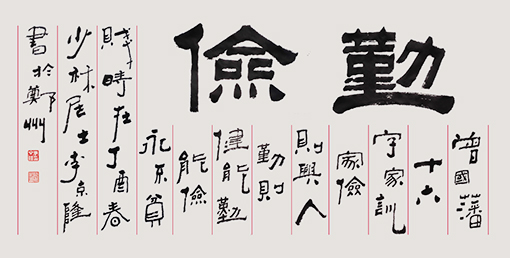 勤儉
曾國藩
十六
字家訓
家儉
則興人
勤則
健能勤
能儉
永不貧
賤時在丁酉春
少林居士李京隆
書於鄭州